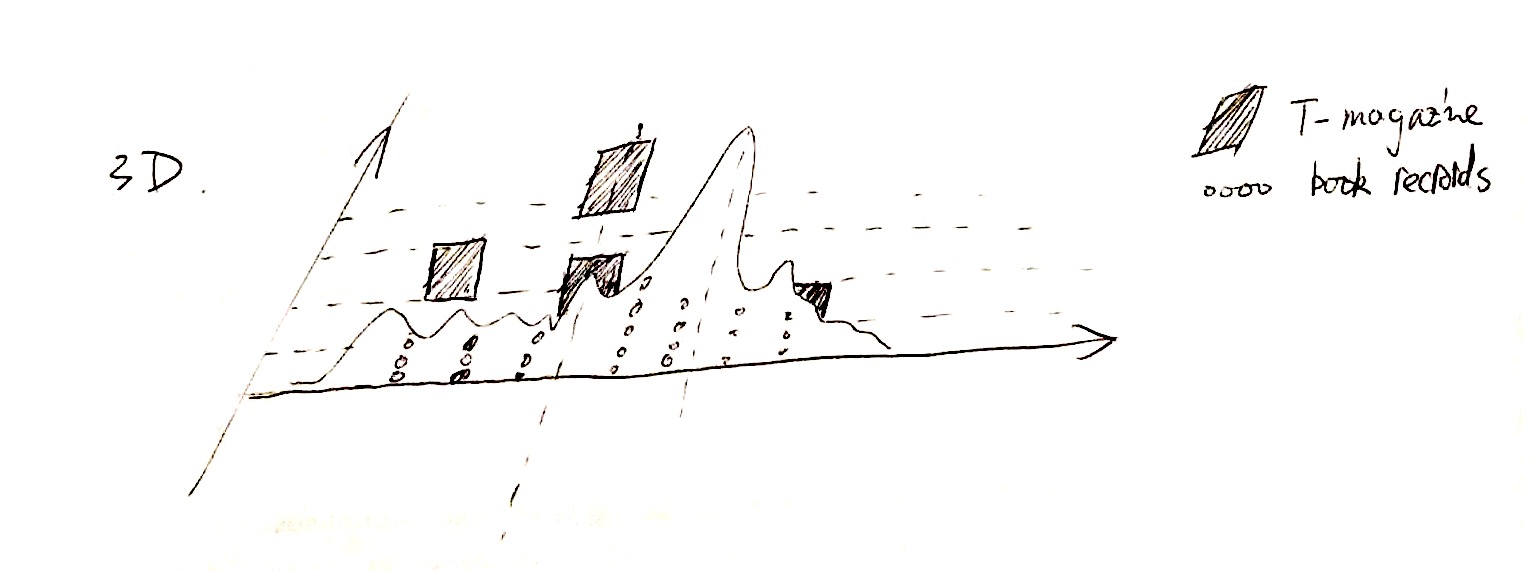 3D.
T-magazine
book records